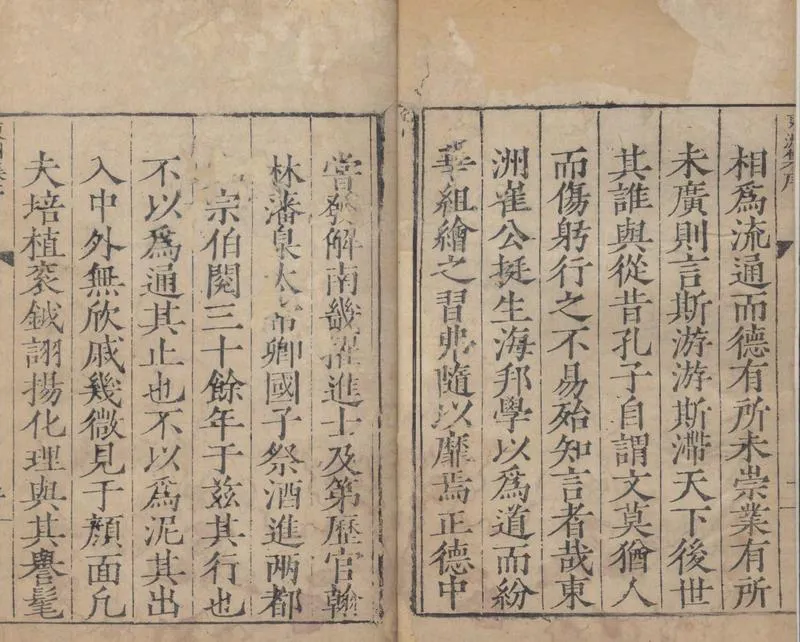 相爲流通而德有所未崇業有所
未廣則言斯游游斯滯天下後世
其誰與從昔孔子自謂文莫猶人
而傷躬行之不易殆知言者哉東
洲崔公挺生海邦學以爲道而紛
華組繪之習弗隨以靡焉正德中
嘗發解南畿擢進士及第歷官翰
林藩臬太常卿國子祭酒進兩都
宗伯閱三十餘年于兹其行也
不以爲通其止也不以爲泥其出
入中外無欣戚幾微見于顔面凢
夫培植衮鉞詡揚化理與其譽髦